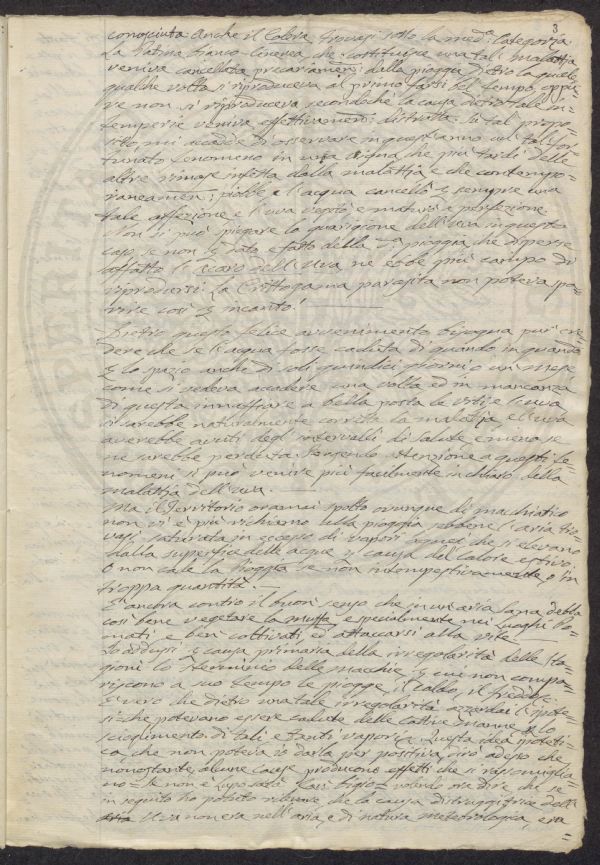 3
conosciuta. Anche il Colera trovasi sotto la med.ª Categoria.
La Patina bianco-Cinerea che costituisce una tal malattia
veniva cancellata precariamen: dalla pioggia dietro la quale
qualche volta si riproduceva al primo farsi bel tempo, oppu=
re non si riproduceva secondochè la causa di tal
temperie veniva effettivamen: distrutta. Su tal propo=
sito, mi accadde di osservare in quest'anno un tal for=
tunato fenomeno in una vigna che più tardi delle
altre rimase infetta dalla malattia, e che contempo=
raneamen: piobbe e l'acqua cancellò sempre una
tale affezione e l'uva vegetò e maturò a perfezione
Non si può spiegare la guarigione dell'uva in questo
caso se non dato, e fatto della pioggia che disperse
affatto l'acaro dell'Uva ne ebbe più campo di
riprodursi: La Crittogama parasita non poteva spa=
rire così incanto!
Dietro questo felice avvenimento bisogna pur cre=
dere che se l'acqua fosse caduta di quando in quando
lo spazio anche di soli quindici giorni o un mese
come si vedeva accadere una volta ed in mancanza
di questa innaffiare a bella posta le viti, e l'uva
si sarebbe naturalmente corretta la malattia, e l'uva
averebbe avuti degli intervalli di salute, e meno se
ne sarebbe perduta. Ponendo attenzione a questi fe=
nomeni si può venire più facilmente in chiaro della
malattia dell'uva.
Ma il Territorio oramai spolto ovunque di macchiatico
non vi è più richiamo della pioggia, sebbene l'aria tro=
vasi saturata in eccesso di vapori acquei che si elevano
dalla superficie delle acque causa del calore estivo
e non cale la pioggia se non intempestivamente, o in
troppa quantità.
È ancora contro il buon senso che in un'aria sana debba
così bene vegetare la muffa e specialmente nei luoghi Do=
mati e ben coltivati ed attaccarsi alla vite.
Io addussi causa primaria della irregolarità delle Sta=
gioni lo Sterminio delle macchie, cui non compa=
riscono a suo tempo le piogge, il caldo, il freddo.
È vero che dietro una tale irregolarità azzardai l'ipote=
si che potevano essere cadute delle cattive manne lo
scioglimento di tali e tanti vapori. Questa idea ipoteti=
ca, che non poteva io darla per positiva, dirò adesso che
nonostante, alcune cause producono effetti che si rassomiglia=
no = Se non è Lupo sarà Can bigio = volendo ora dire che se
in seguito ho potuto rilevare, che la causa distruggitrice dell'
Uva non era nell'aria, e di natura meteorologica, era